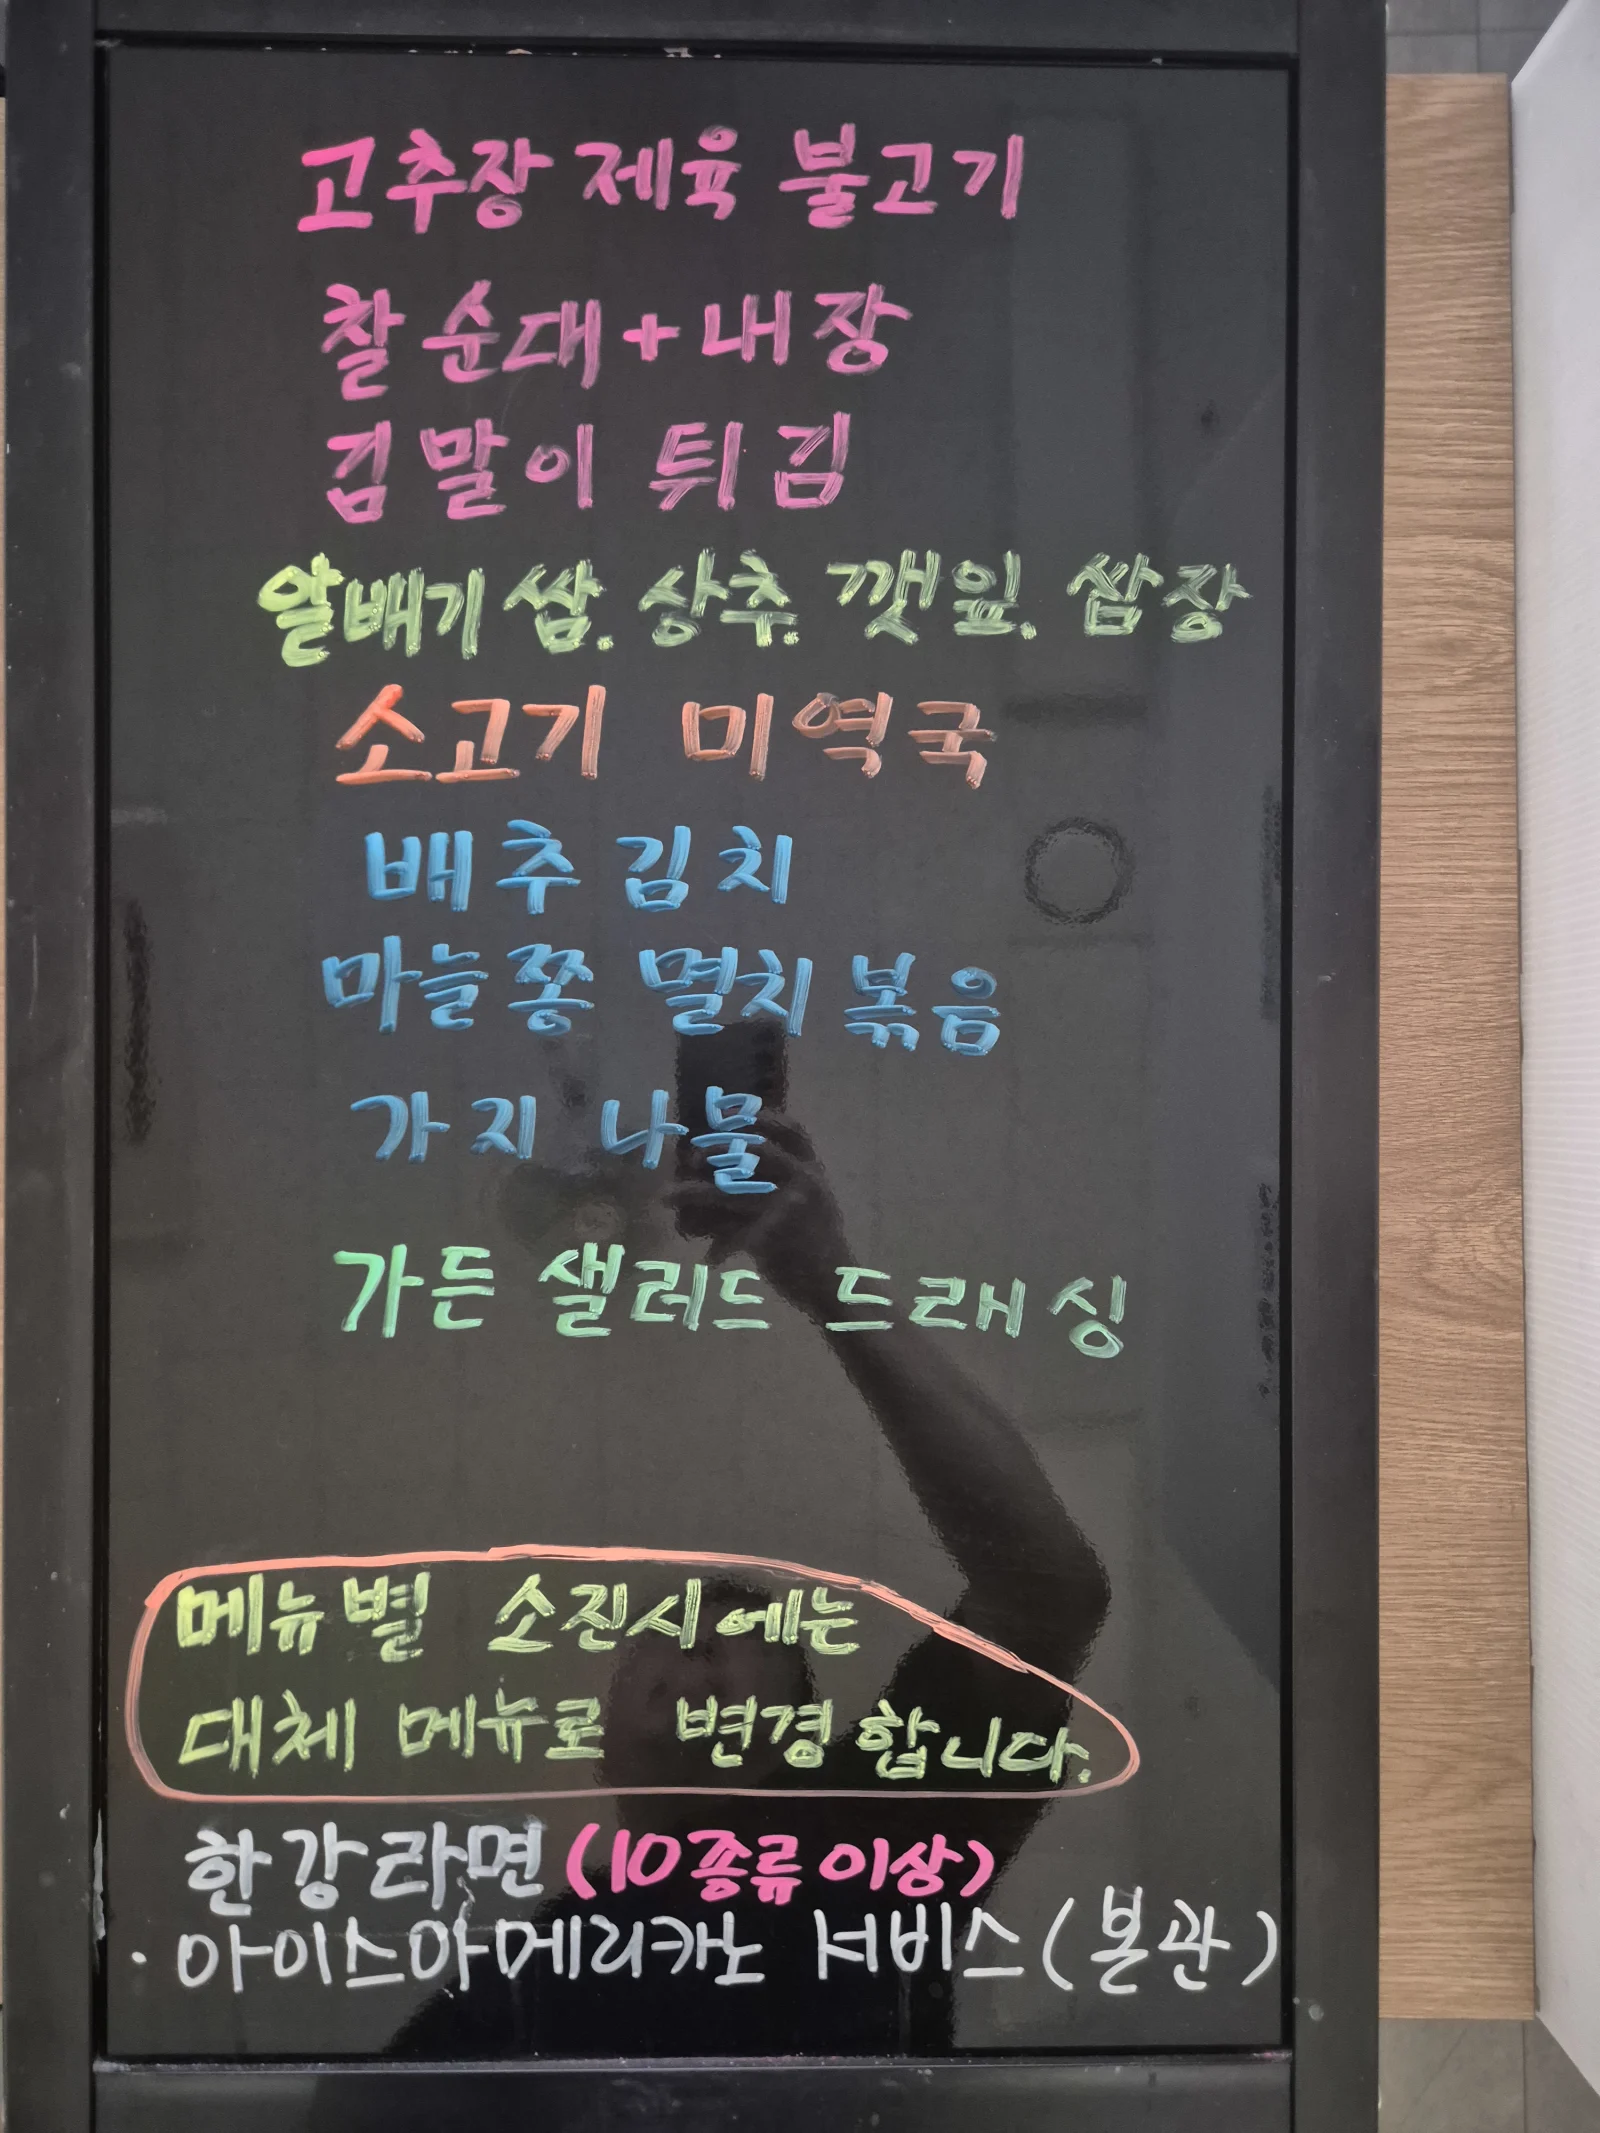 고추장 제육 불고기
찰순대+내장
김말이 튀김
알배기 쌈. 상추. 깻잎. 쌈장
소고기 미역국
배추김치
마늘쫑 멸치 볶음
가지 나물
가든 샐러드 드래싱
메뉴별 소진시에는
대체 메뉴로 변경합니다.
한강라면 (10종류 이상)
· 아이스아메리카노 서비스 (본관)